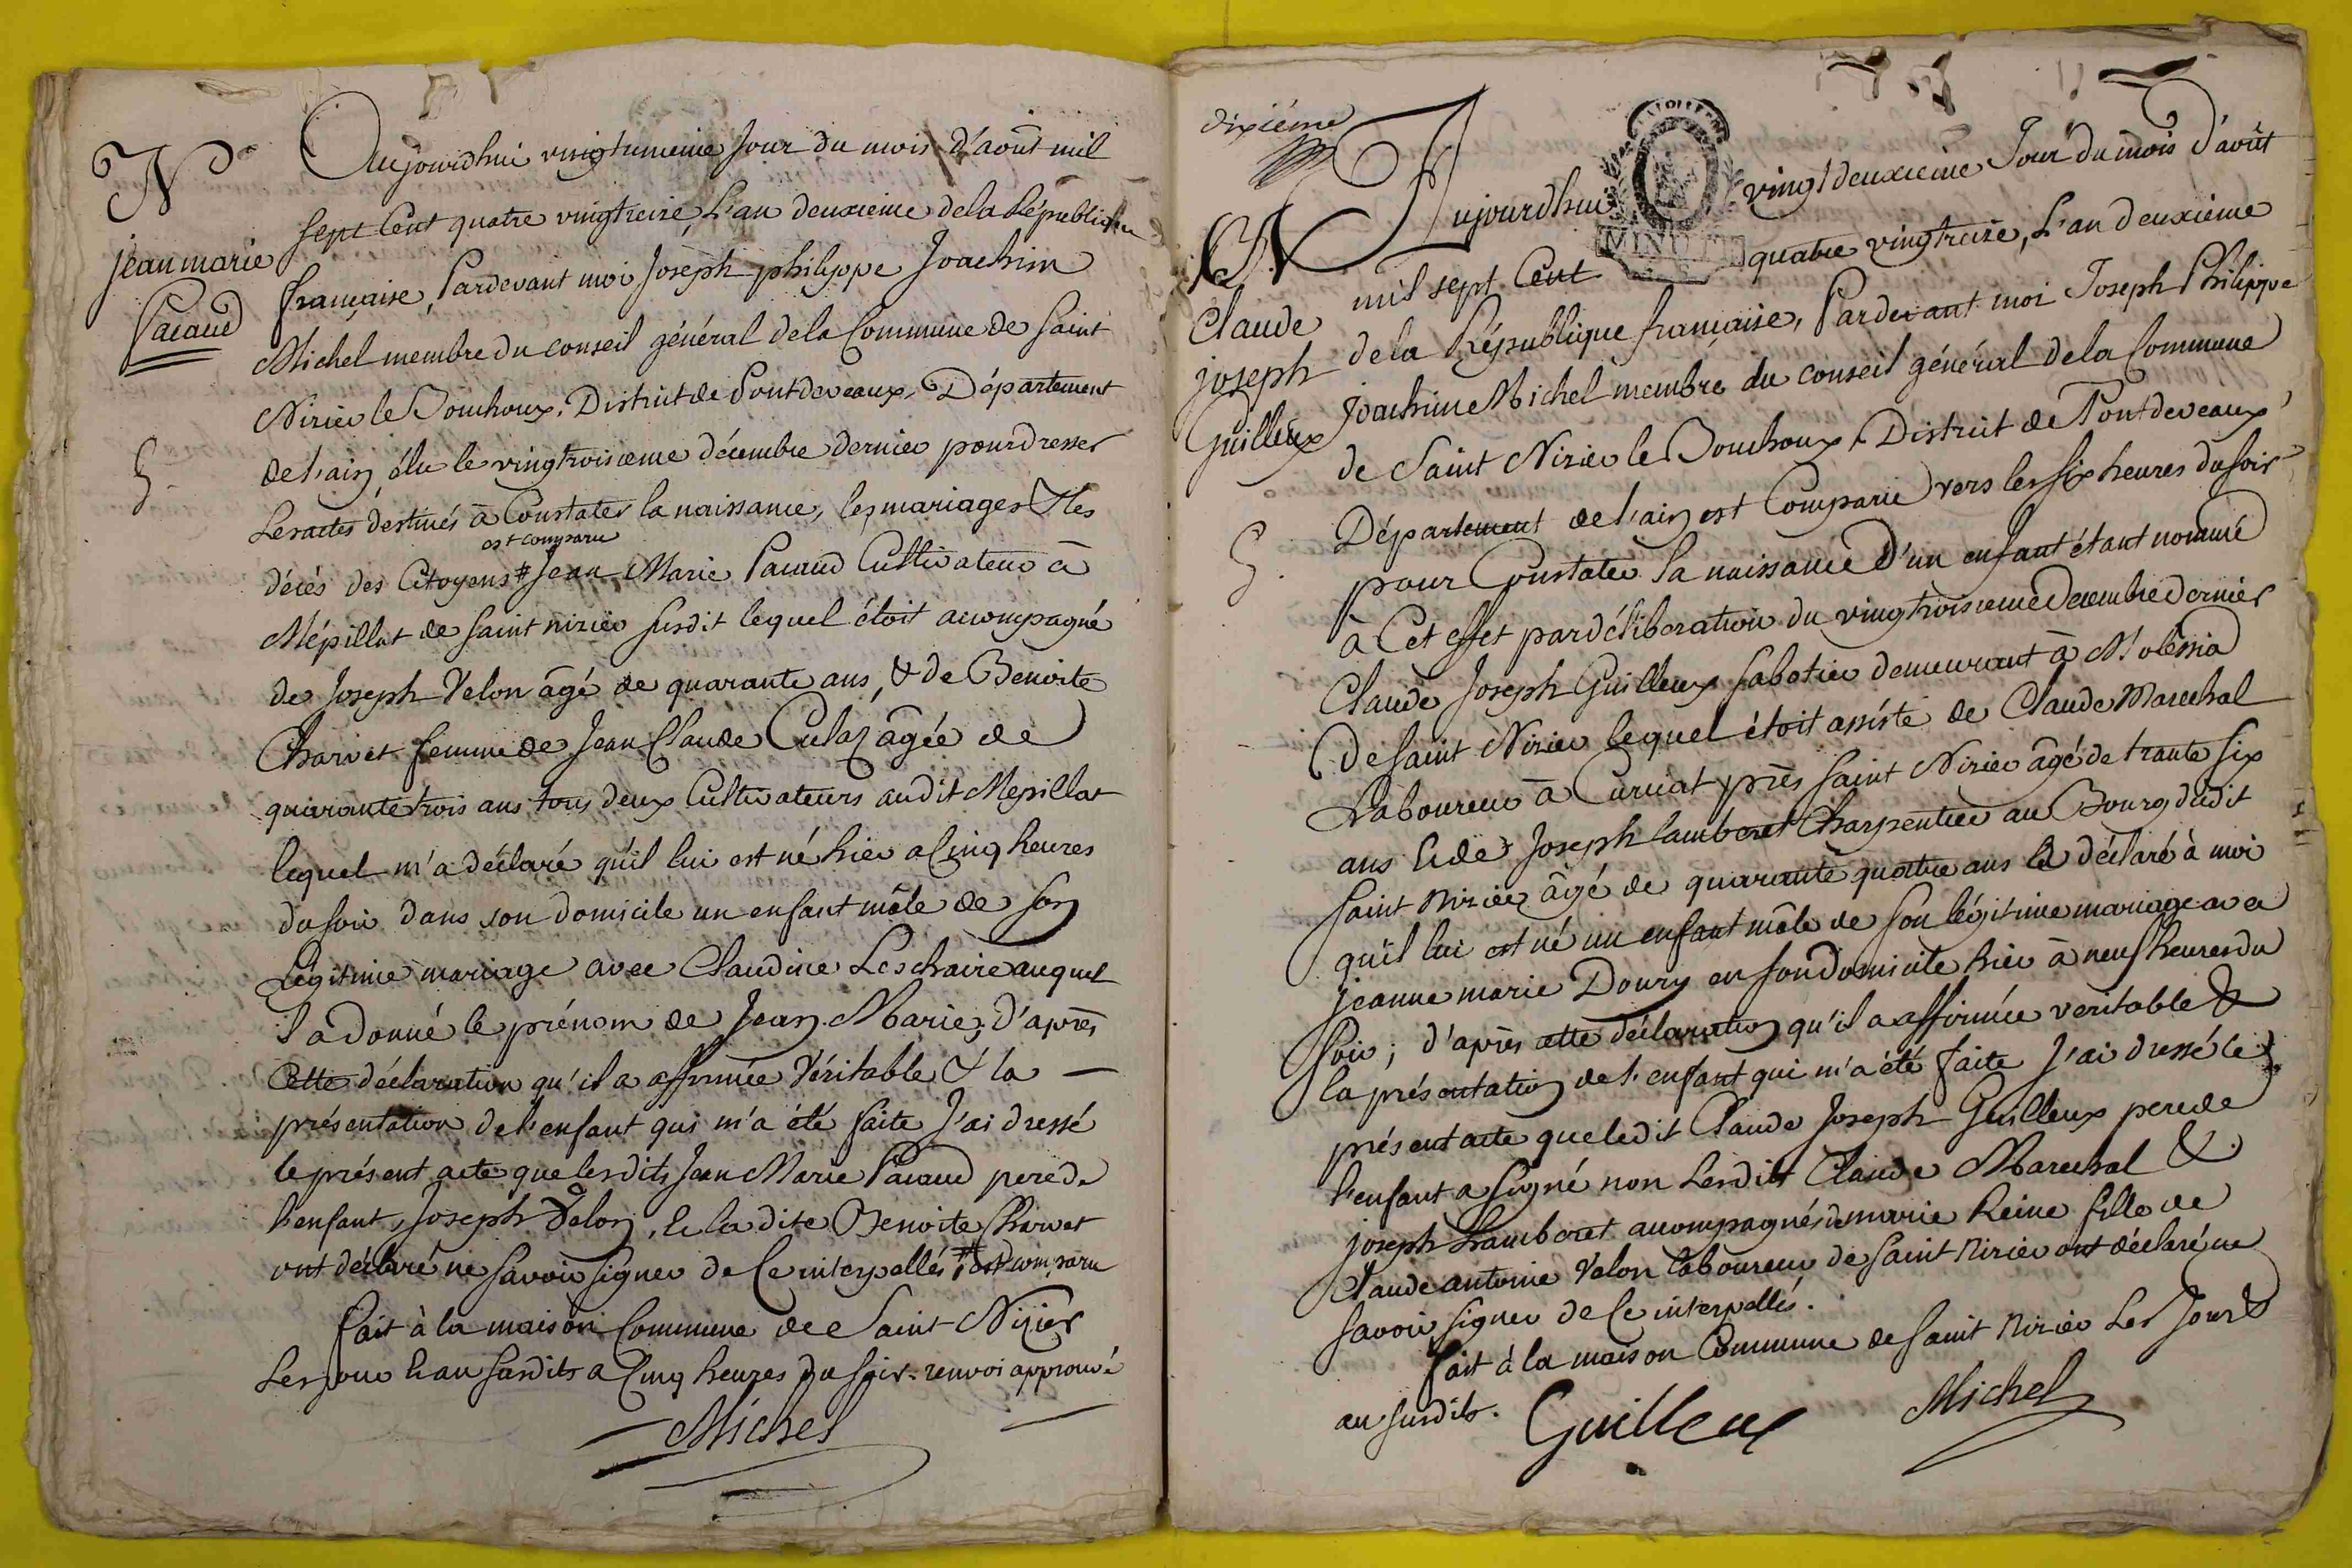 N°
jean marie
Pacaud
G.
Aujourdhui vingtunieme Jour du mois d'août mil
sept Cent quatre vingtreize, L'an deuxieme dela Républiq
française, Pardevant moi Joseph philippe Joachim
Michel membre du conseil général dela Commune de Saint
Nizier le Bouchoux, District de Pontdeveaux, Département
del'ain élu le vingtroisieme décembre dernier pour dresser
Les actes destinés à Constater la naissance, les mariages & les
est comparu
décés des Citoyens # Jean Marie Pacaud Cultivateur à
Mépillat de saint nizier susdit lequel étoit accompagné
de Joseph Velon âgé de quarante ans, & de Benoite
Charvet femme de Jean Claude Culaz âgée de
quarante trois ans tous deux Cultivateurs audit Mepillat
lequel m'a déclaré qu'il lui est né hier a Cinq heures
du soir dans son domicile un enfant mâle de son
Légitime mariage avec Claudine Leschaire auquel
il a donné le prénom de Jean Marie, d'après
Cette déclaration qu'il a affirmée Véritable & la —
présentation del'enfant qui m'a été faite J'ai dressé
le présent acte que lesdits Jean Marie Pacaud pere de
l'enfant, Joseph Velon, & la dite Benoite Charvet
ont déclaré ne savoir signer de Ce interpellés # est comparu
fait à la maison Commune de Saint Nizier
Les jour & an susdits a Cinq heures du soir. renvoi approuvé
Michel
dixiéme
N
Claude
joseph
Guilleux
G.
MINUTE
Aujourdhui vingt deuxieme Jour du mois d'août
mil sept Cent quatre vingtreize, L'an deuxieme
dela République française, Pardevant moi Joseph Philippe
Joachim Michel membre du conseil général dela Commune
de Saint Nizier le Bouchoux, District de Pontdeveaux,
Département de l'ain est Comparu vers les six heures du soir
pour Constater la naissance d'un enfant étant nommé
à Cet effet par déliberation du vingtroisieme Decembre dernier
Claude Joseph Guilleux sabotier demeurant à Molessia
de saint Nizier lequel étoit assisté de Claude Marechal
Laboureur à Curciat près saint Nizier âgé de trante six
ans & de Joseph Lamberet Charpentier au Bourg dudit
saint nizier âgé de quarante quatre ans a déclaré à moi
qu'il lui est né un enfant mâle de son légitime mariage avec
jeanne marie Doury en son domicile hier à neuf heures du
soir; d'après cette déclaration qu'il a affirmée veritable &
la présentation de l'enfant qui m'a été faite J'ai dressé le
présent acte que ledit Claude Joseph Guilleux pere de
l'enfant a signé non Lesdits Claude Marechal &
joseph Lamberet accompagnés de marie Reine fille de
Claude antoine Velon laboureur de saint nizier ont déclaré ne
savoir signer de Ce interpellés.
fait à la maison Commune de saint nizier Les Jour &
an susdits.
Guilleux
Michel